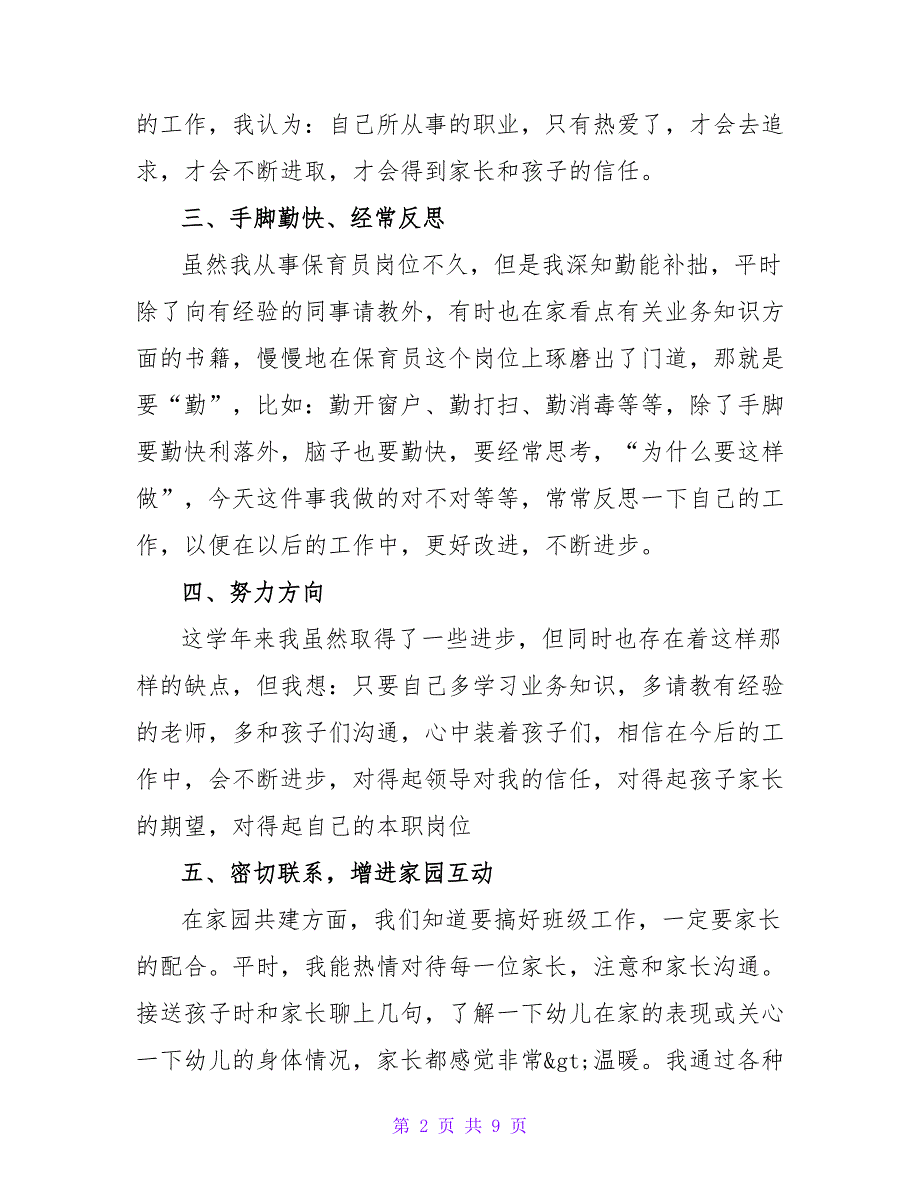 的工作，我认为：自己所从事的职业，只有热爱了，才会去追
求，才会不断进取，才会得到家长和孩子的信任。
三、手脚勤快、经常反思
虽然我从事保育员岗位不久，但是我深知勤能补拙，平时
除了向有经验的同事请教外，有时也在家看点有关业务知识方
面的书籍，慢慢地在保育员这个岗位上琢磨出了门道，那就是
要“勤”，比如：勤开窗户、勤打扫、勤消毒等等，除了手脚
要勤快利落外，脑子也要勤快，要经常思考，“为什么要这样
做”，今天这件事我做的对不对等等，常常反思一下自己的工
作，以便在以后的工作中，更好改进，不断进步。
四、努力方向
这学年来我虽然取得了一些进步，但同时也存在着这样那
样的缺点，但我想：只要自己多学习业务知识，多请教有经验
的老师，多和孩子们沟通，心中装着孩子们，相信在今后的工
作中，会不断进步，对得起领导对我的信任，对得起孩子家长
的期望，对得起自己的本职岗位
五、密切联系，增进家园互动
在家园共建方面，我们知道要搞好班级工作，一定要家长
的配合。平时，我能热情对待每一位家长，注意和家长沟通。
接送孩子时和家长聊上几句，了解一下幼儿在家的表现或关心
一下幼儿的身体情况，家长都感觉非常&gt;温暖。我通过各种
第 2 页 共 9 页